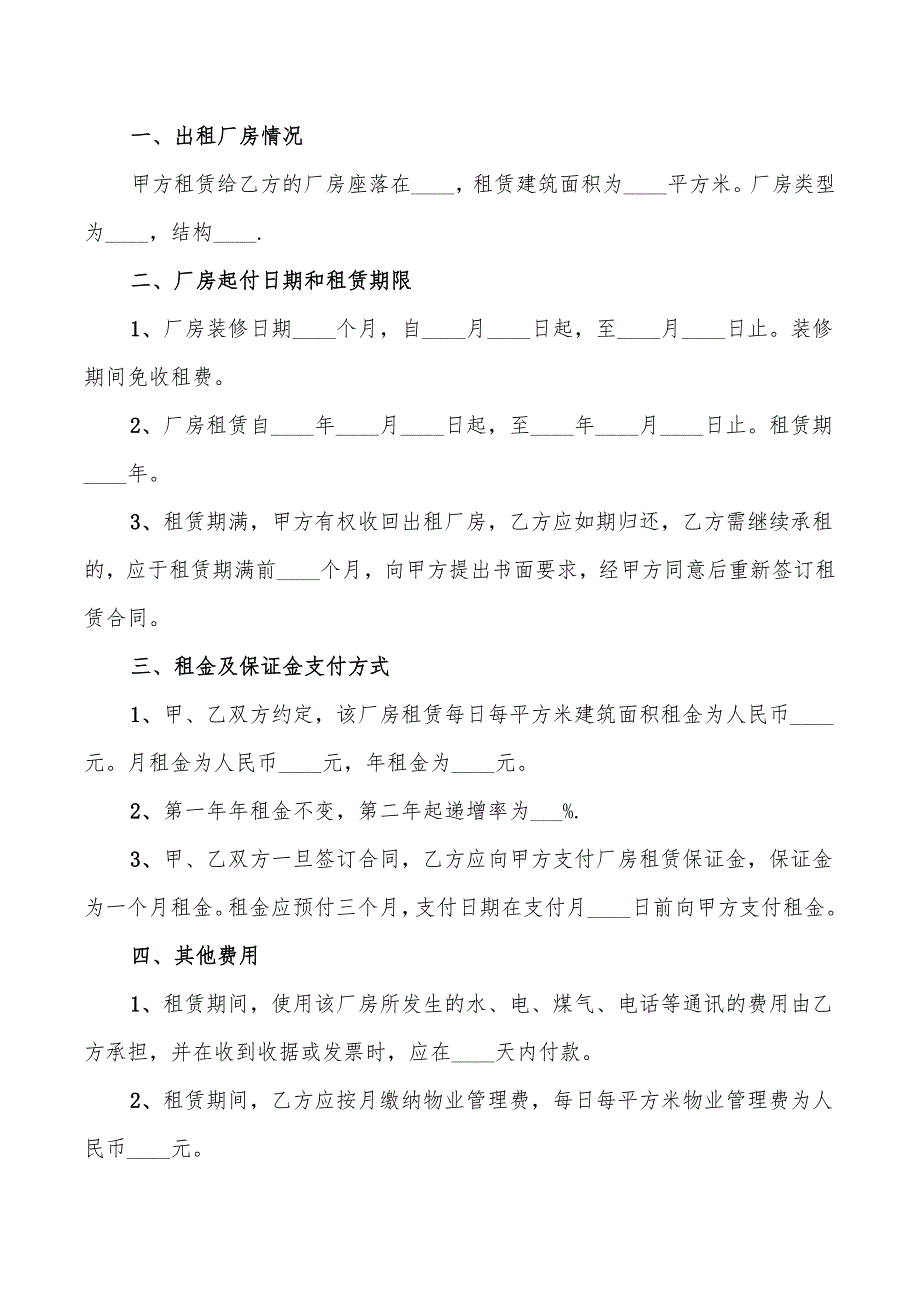 一、出租厂房情况
甲方租赁给乙方的厂房座落在____，租赁建筑面积为____平方米。厂房类型
为____，结构____.
二、厂房起付日期和租赁期限
1、厂房装修日期____个月，自____月____日起，至____月____日止。装修
期间免收租费。
2、厂房租赁自____年____月____日起，至____年____月____日止。租赁期
____年。
3、租赁期满，甲方有权收回出租厂房，乙方应如期归还，乙方需继续承租
的，应于租赁期满前____个月，向甲方提出书面要求，经甲方同意后重新签订租
赁合同。
三、租金及保证金支付方式
1、甲、乙双方约定，该厂房租赁每日每平方米建筑面积租金为人民币____
元。月租金为人民币____元，年租金为____元。
2、第一年年租金不变，第二年起递增率为___%.
3、甲、乙双方一旦签订合同，乙方应向甲方支付厂房租赁保证金，保证金
为一个月租金。租金应预付三个月，支付日期在支付月____日前向甲方支付租金。
四、其他费用
1、租赁期间，使用该厂房所发生的水、电、煤气、电话等通讯的费用由乙
方承担，并在收到收据或发票时，应在____天内付款。
2、租赁期间，乙方应按月缴纳物业管理费，每日每平方米物业管理费为人
民币____元。